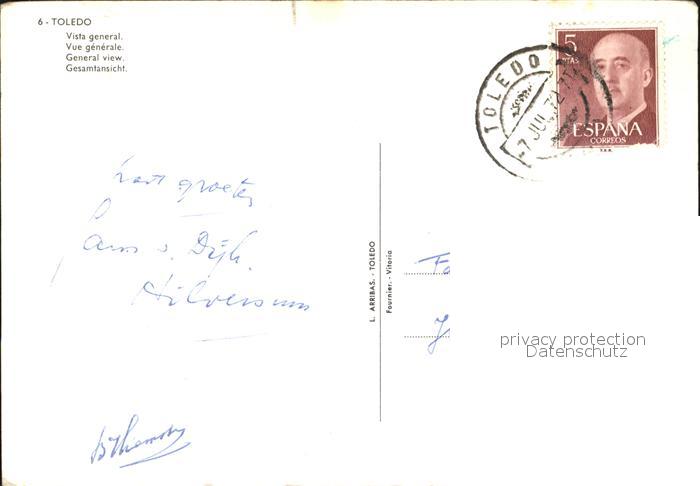 6 - TOLEDO
Vista general.
Vue générale.
General view.
Gesamtansicht.
5
PTAS
ESPAÑA
CORREOS
TOLEDO
-7 JUL. 72
groeten
v. Dijk
Hilversum
L. ARRIBAS. - TOLEDO
Fournier. - Vitoria
Fa
J
privacy protection
Datenschutz